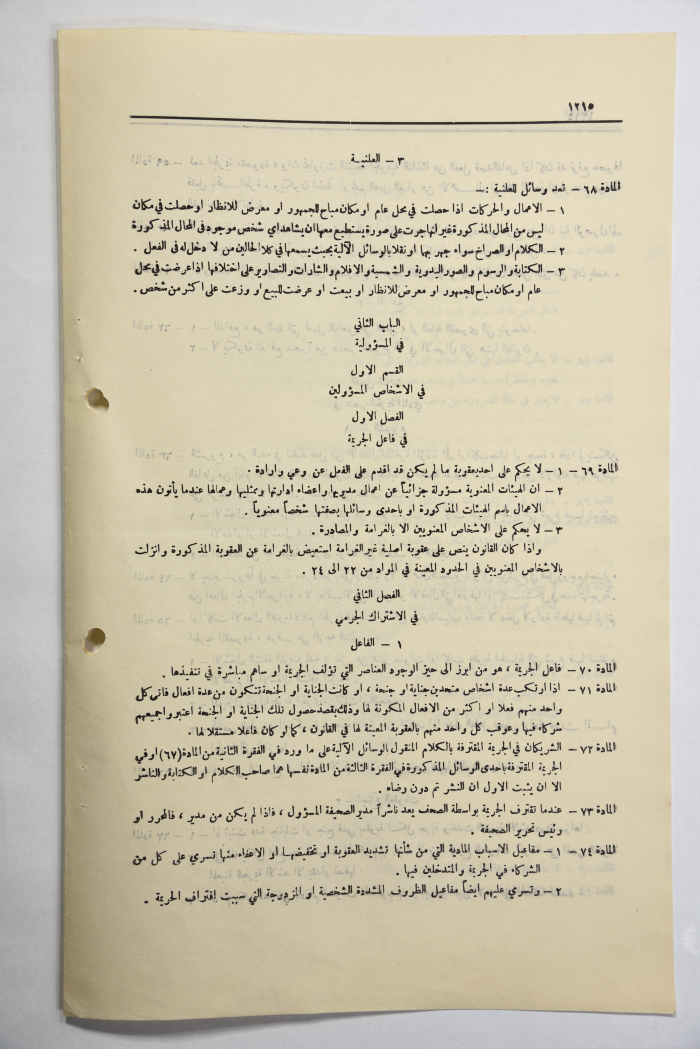 ١٢١٥
٣ – العلنية
المادة ٦٨ – تعد وسائل للعلنية :–
١ – الاعمال والحركات اذا حصلت في محل عام او مكان مباح للجمهور او معرض للانظار او حصلت في مكان
ليس من المحال المذكورة غير انها جرت على صورة يستطيع معها ان يشاهد اي شخص موجود في المحال المذكورة
٢ – الكلام او الصراخ سواء جهر بهما او نقلا بالوسائل الآلية بحيث يسمعها في كلا الحالين من لا دخل له في الفعل .
٣ – الكتابة والرسوم والصور اليدوية والشمسية والافلام والشارات والتصاوير على اختلافها اذا عرضت في محل
عام او مكان مباح للجمهور او معرض للانظار او بيعت او عرضت للبيع او وزعت على اكثر من شخص .
الباب الثاني
في المسؤولية
القسم الاول
في الاشخاص المسؤولين
الفصل الاول
في فاعل الجريمة
المادة ٦٩ – ١ – لا يحكم على احد بعقوبة ما لم يكن قد اقدم على الفعل عن وعي وارادة .
٢ – ان الهيئات المعنوية مسؤولة جزائياً عن اعمال مديريها واعضاء ادارتها وممثليها وعمالها عندما يأتون هذه
الاعمال باسم الهيئات المذكورة او باحدى وسائلها بصفتها شخصاً معنوياً .
٣ – لا يحكم على الاشخاص المعنويين الا بالغرامة والمصادرة .
واذا كان القانون ينص على عقوبة اصلية غير الغرامة استعيض بالغرامة عن العقوبة المذكورة وانزلت
بالاشخاص المعنويين في الحدود المعينة في المواد من ٢٢ الى ٢٤ .
الفصل الثاني
في الاشتراك الجرمي
١ – الفاعل
المادة ٧٠ – فاعل الجريمة ، هو من ابرز الى حيز الوجود العناصر التي تؤلف الجريمة او ساهم مباشرة في تنفيذها .
المادة ٧١ – اذا ارتكب عدة اشخاص متحدين جناية او جنحة ، او كانت الجناية او الجنحة تتكون من عدة افعال فاتى كل
واحد منهم فعلا او اكثر من الافعال المكونة لها وذلك بقصد حصول تلك الجناية او الجنحة اعتبروا جميعهم
شركاء فيها وعوقب كل واحد منهم بالعقوبة المعينة لها في القانون ، كما لو كان فاعلا مستقلا لها .
المادة ٧٢ – الشريكان في الجريمة المقترفة بالكلام المنقول بالوسائل الآلية على ما ورد في الفقرة الثانية من المادة (٦٧) او في
الجريمة المقترفة باحدى الوسائل المذكورة في الفقرة الثالثة من المادة نفسها هما صاحب الكلام او الكتابة والناشر
الا ان يثبت الاول ان النشر تم دون رضاه .
المادة ٧٣ – عندما تقترف الجريمة بواسطة الصحف يعد ناشراً مدير الصحيفة المسؤول ، فاذا لم يكن من مدير ، فالمحرر او
رئيس تحرير الصحيفة .
المادة ٧٤ – ١ – مفاعيل الاسباب المادية التي من شأنها تشديد العقوبة او تخفيضها او الاعفاء منها تسري على كل من
الشركاء في الجريمة والمتدخلين فيها .
٢ – وتسري عليهم ايضاً مفاعيل الظروف المشددة الشخصية او المزدوجة التي سببت اقتراف الجريمة .